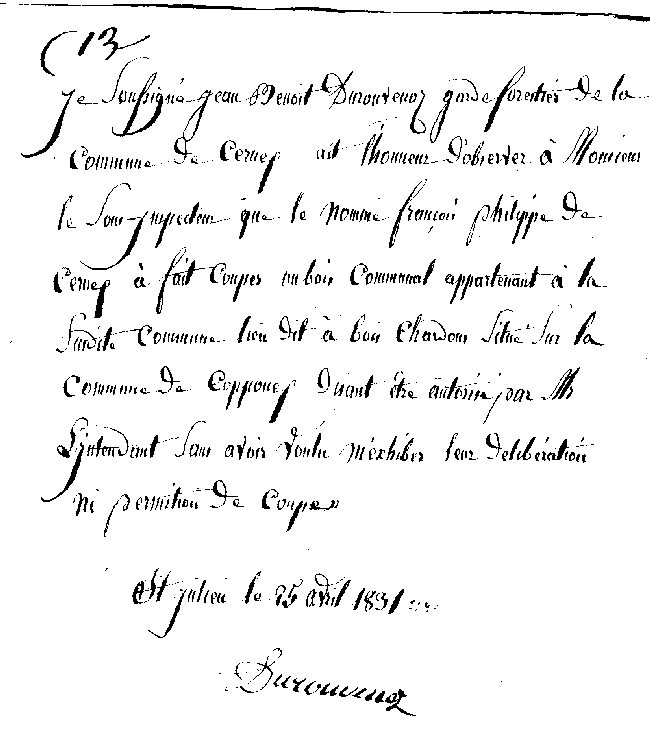 13
je Soussigné jean Benoit Durouvenoz garde forestier de la
Commune de Cernex ait l'honneur d'observer à Monsieur
le Sous-jnspecteur que le nommé françois philippe de
Cernex à fait Couper un bois Communal appartenant à la
Susdite Commune lieu dit à bois Chardon Situé Sur la
Commune de Copponex disant être autorisé par Mr
L'jntendant Sans avoir voulu m'exhiber leur deliberation
ni permition de Couper
St julien le 25 avril 1831
Durouvenoz